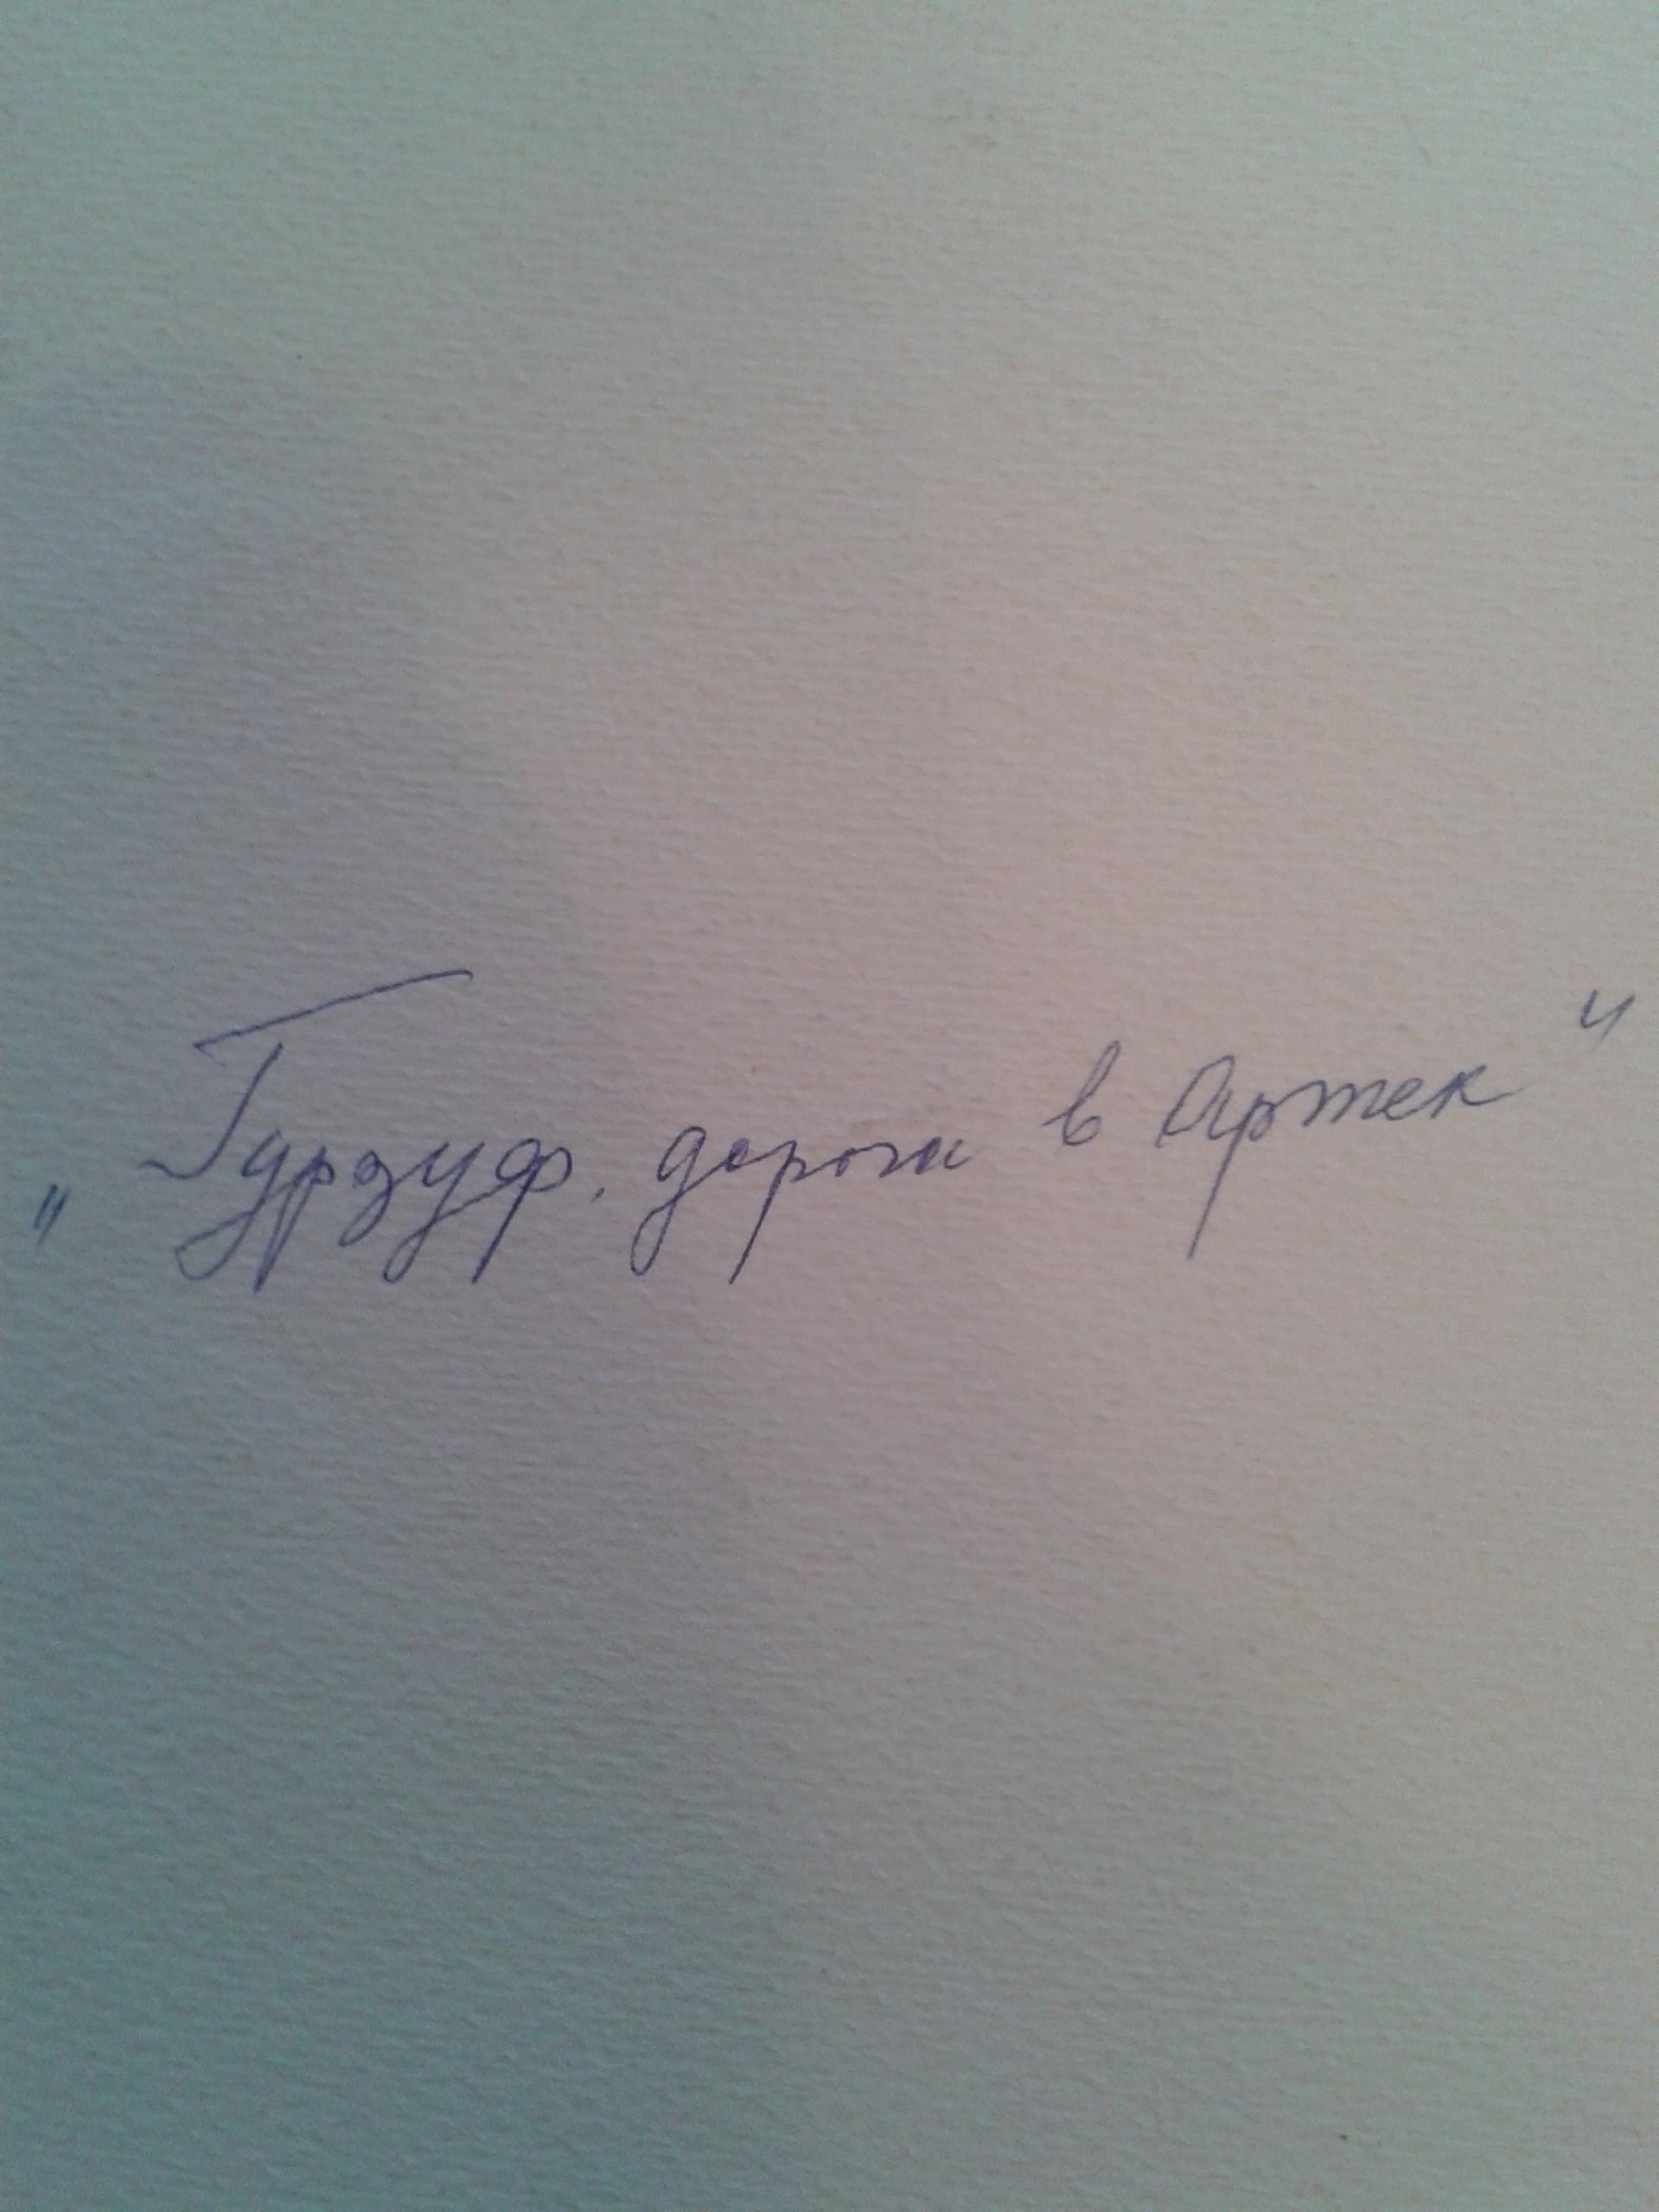 „Гурзуф. дорога в Артек"